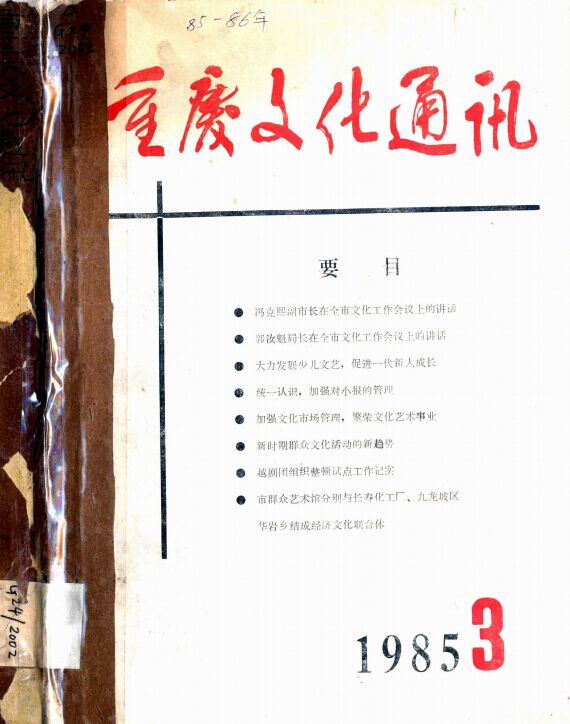 85-86年
重慶文化通讯
要 目
● 冯克熙副市长在全市文化工作会议上的讲话
● 郭汝魁局长在全市文化工作会议上的讲话
● 大力发展少儿文艺，促进一代新人成长
● 统一认识，加强对小报的管理
● 加强文化市场管理，繁荣文化艺术事业
● 新时期群众文化活动的新趋势
● 越剧团组织整顿试点工作记实
● 市群众艺术馆分别与长寿化工厂、九龙坡区
华岩乡结成经济文化联合体
1985 3
G24/2002